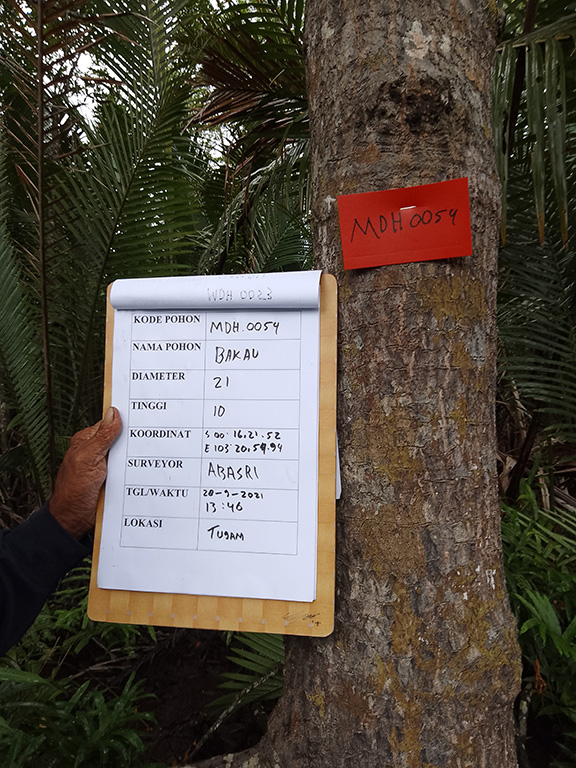 MDH 0054
WDH 0023
KODE POHON MDH.0054
NAMA POHON BAKAU
DIAMETER 21
TINGGI 10
KOORDINAT S 00.16.21.52
E 103.20.54.94
SURVEYOR ABASRI
TGL/WAKTU 20-9-2021
13:46
LOKASI TUGAM